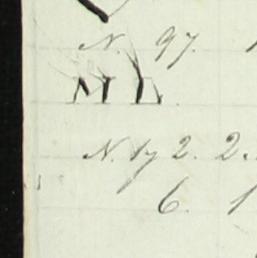 N. 97.
N. 1y 2. 2.
6. 1